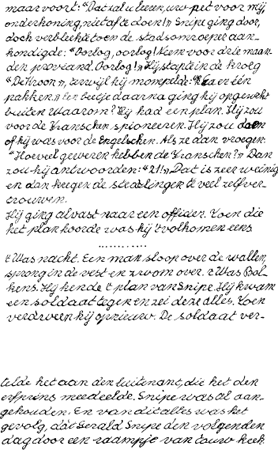 maar voort: "Dat zal u leren, uw pet voor mij,
onderkoning, niet af te doen!" Snipe ging door,
doch verbleekte toen de stadsomroeper aan-
kondigde: "Oorlog, oorlog! Kom voor drie maan-
den proviand. Oorlog!" Hij stapte in de kroeg
"De Kroon", terwijl hij mompelde: er één
pakken." Een beetje daarna ging hij opgewekt
buiten. Waarom? Hij had een plan. Hij zou
voor de Franschen spioneeren. Hij zou doen
of hij was voor de Engelschen. Als ze dan vroegen:
"Hoeveel geweren hebben de Franschen?" Dan
zou hij antwoorden: "21!" Dat is zeer weinig
en dan kregen de stedelingen te veel zelfver-
trouwen.
Hij ging alvast naar een officier. Toen die
het plan hoorde was hij 't volkomen eens
...........
't Was nacht. Een man sloop over de wallen,
sprong in de vest en zwom over. 't Was Bol-
kins. Hij kende 't plan van Snipe. Hij kwam
een soldaat tegen en zei deze alles. Toen
verdween hij opnieuw. De soldaat ver-
telde het aan den luitenant, die het den
meedeelde. Snipe was al aan-
gehouden. En van dit alles was het
gevolg, dat Gerald Snipe den volgenden
dag door een raampje van touw keek